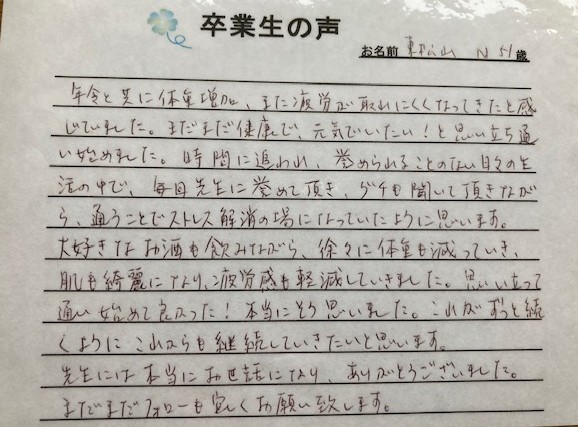 卒業生の声
お名前 東松山 N 51歳
年令と共に体重増加、また疲労が取れにくくなってきたと感
じていました。まだまだ健康で、元気でいたい！と思い立ち通
い始めました。時間に追われ、誉められることのない日々の生
活の中で、毎回先生に誉めて頂き、グチも聞いて頂きなが
ら、通うことでストレス解消の場になっていたように思います。
大好きなお酒も飲みながら、徐々に体重も減っていき、
肌も綺麗になり、疲労感も軽減していきました。思い立って
通い始めて良かった！本当にそう思いました。これがずっと続
くようにこれからも継続していきたいと思います。
先生には本当にお世話になり、ありがとうございました。
まだまだフォローも宜しくお願い致します。